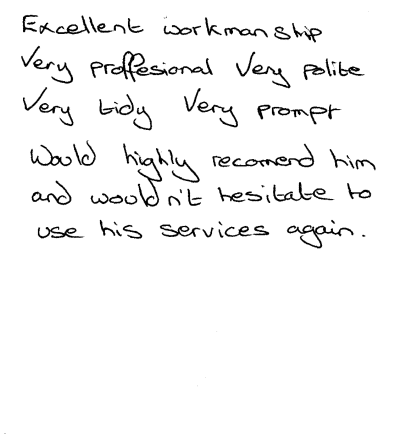 Excellent workmanship
Very proffesional Very polite
Very tidy Very prompt
Would highly recomend him
and wouldn't hesitate to
use his services again.